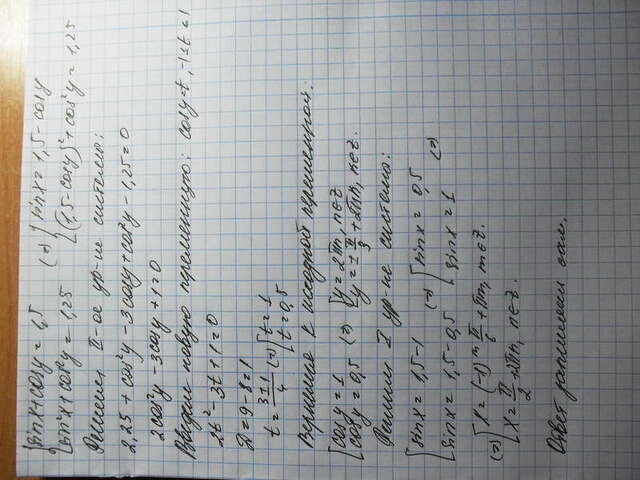 { sinx+cosy=1,5 (=) { sinx=1,5-cosy
{ sin²x+cos²y=1,25 { (1,5-cosy)²+cos²y=1,25
Решаем II-ое ур-ие системы:
2,25+cos²y-3cosy+cos²y-1,25=0
2cos²y-3cosy+1=0
Вводим новую переменную: cosy=t, -1≤t≤1
2t²-3t+1=0
D=9-8=1
t=(3±1)/4 (=) [ t=1
[ t=0,5
Вернемся к исходной переменной:
[ cosy=1 (=) [ y=2πn, n∈z
[ cosy=0,5 [ y=±π/3+2πn, n∈z.
Решаем I ур-ие системы:
[ sinx=1,5-1 (=) [ sinx=0,5 (=)
[ sinx=1,5-0,5 [ sinx=1
(=) [ x=(-1)ᵐ π/6+πm, m∈z.
[ x=π/2+2πn, n∈z.
Ответ запишешь сам.